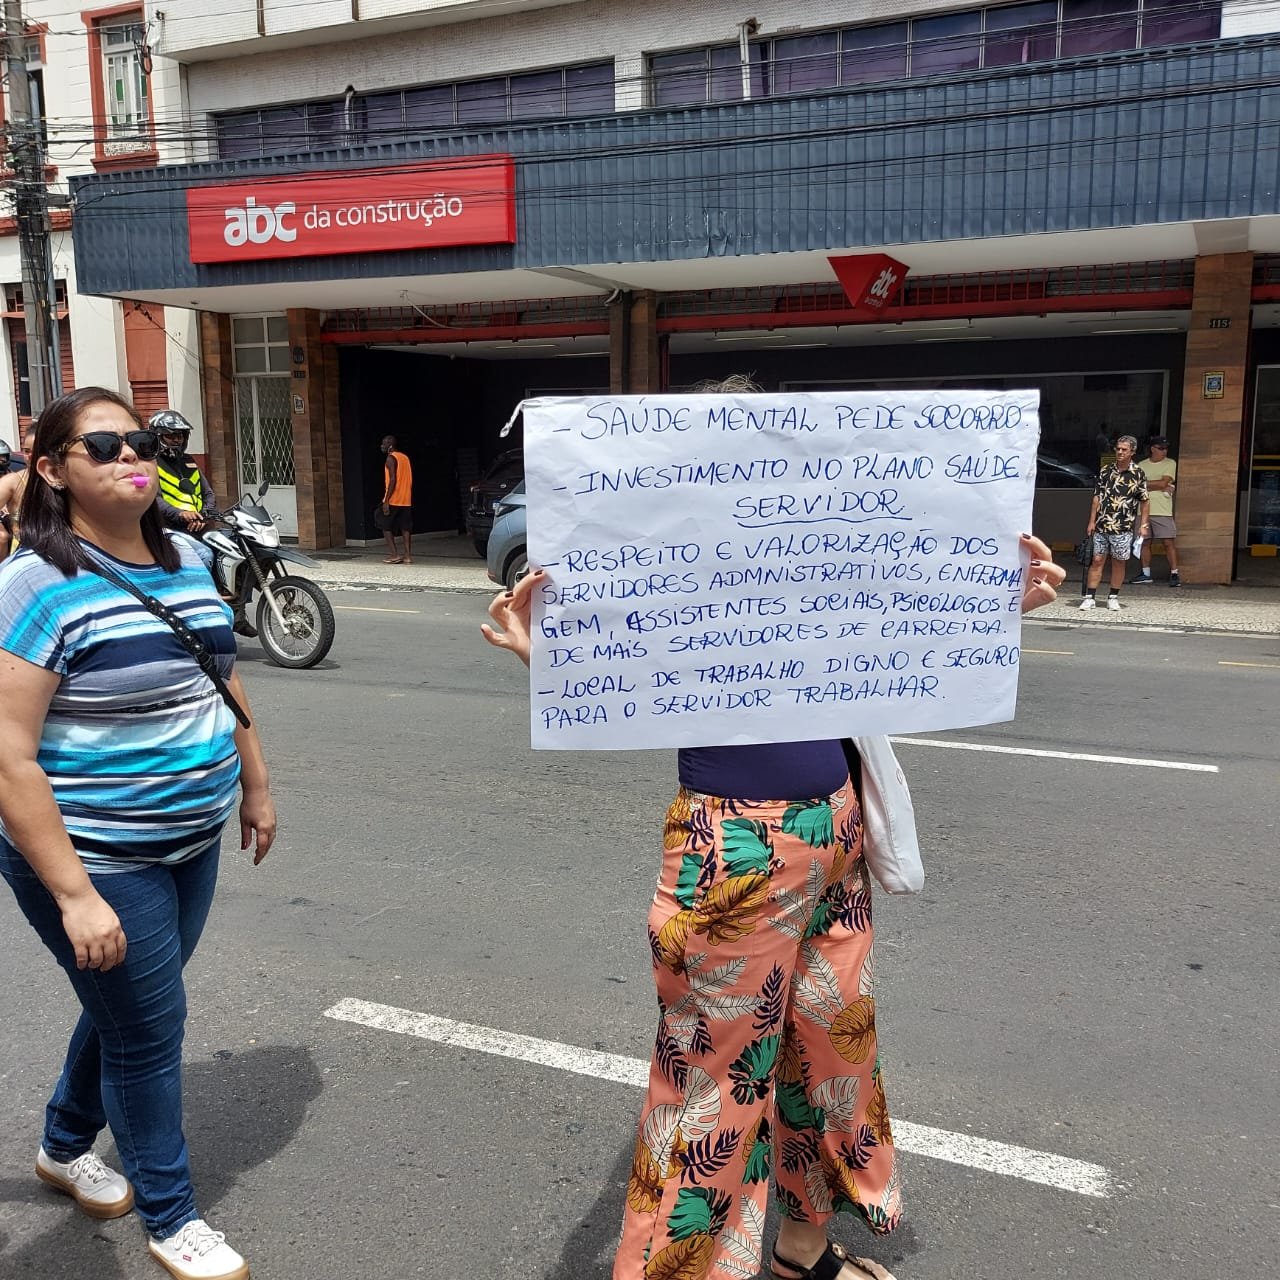 abc da construção
abc
115
- SAÚDE MENTAL PEDE SOCORRO.
- INVESTIMENTO NO PLANO SAÚDE
SERVIDOR.
- RESPEITO E VALORIZAÇÃO DOS
SERVIDORES ADMNISTRATIVOS, ENFERMA
GEM, ASSISTENTES SOCIAIS, PSICÓLOGOS E
DE MAIS SERVIDORES DE CARREIRA.
- LOCAL DE TRABALHO DIGNO E SEGURO
PARA O SERVIDOR TRABALHAR.